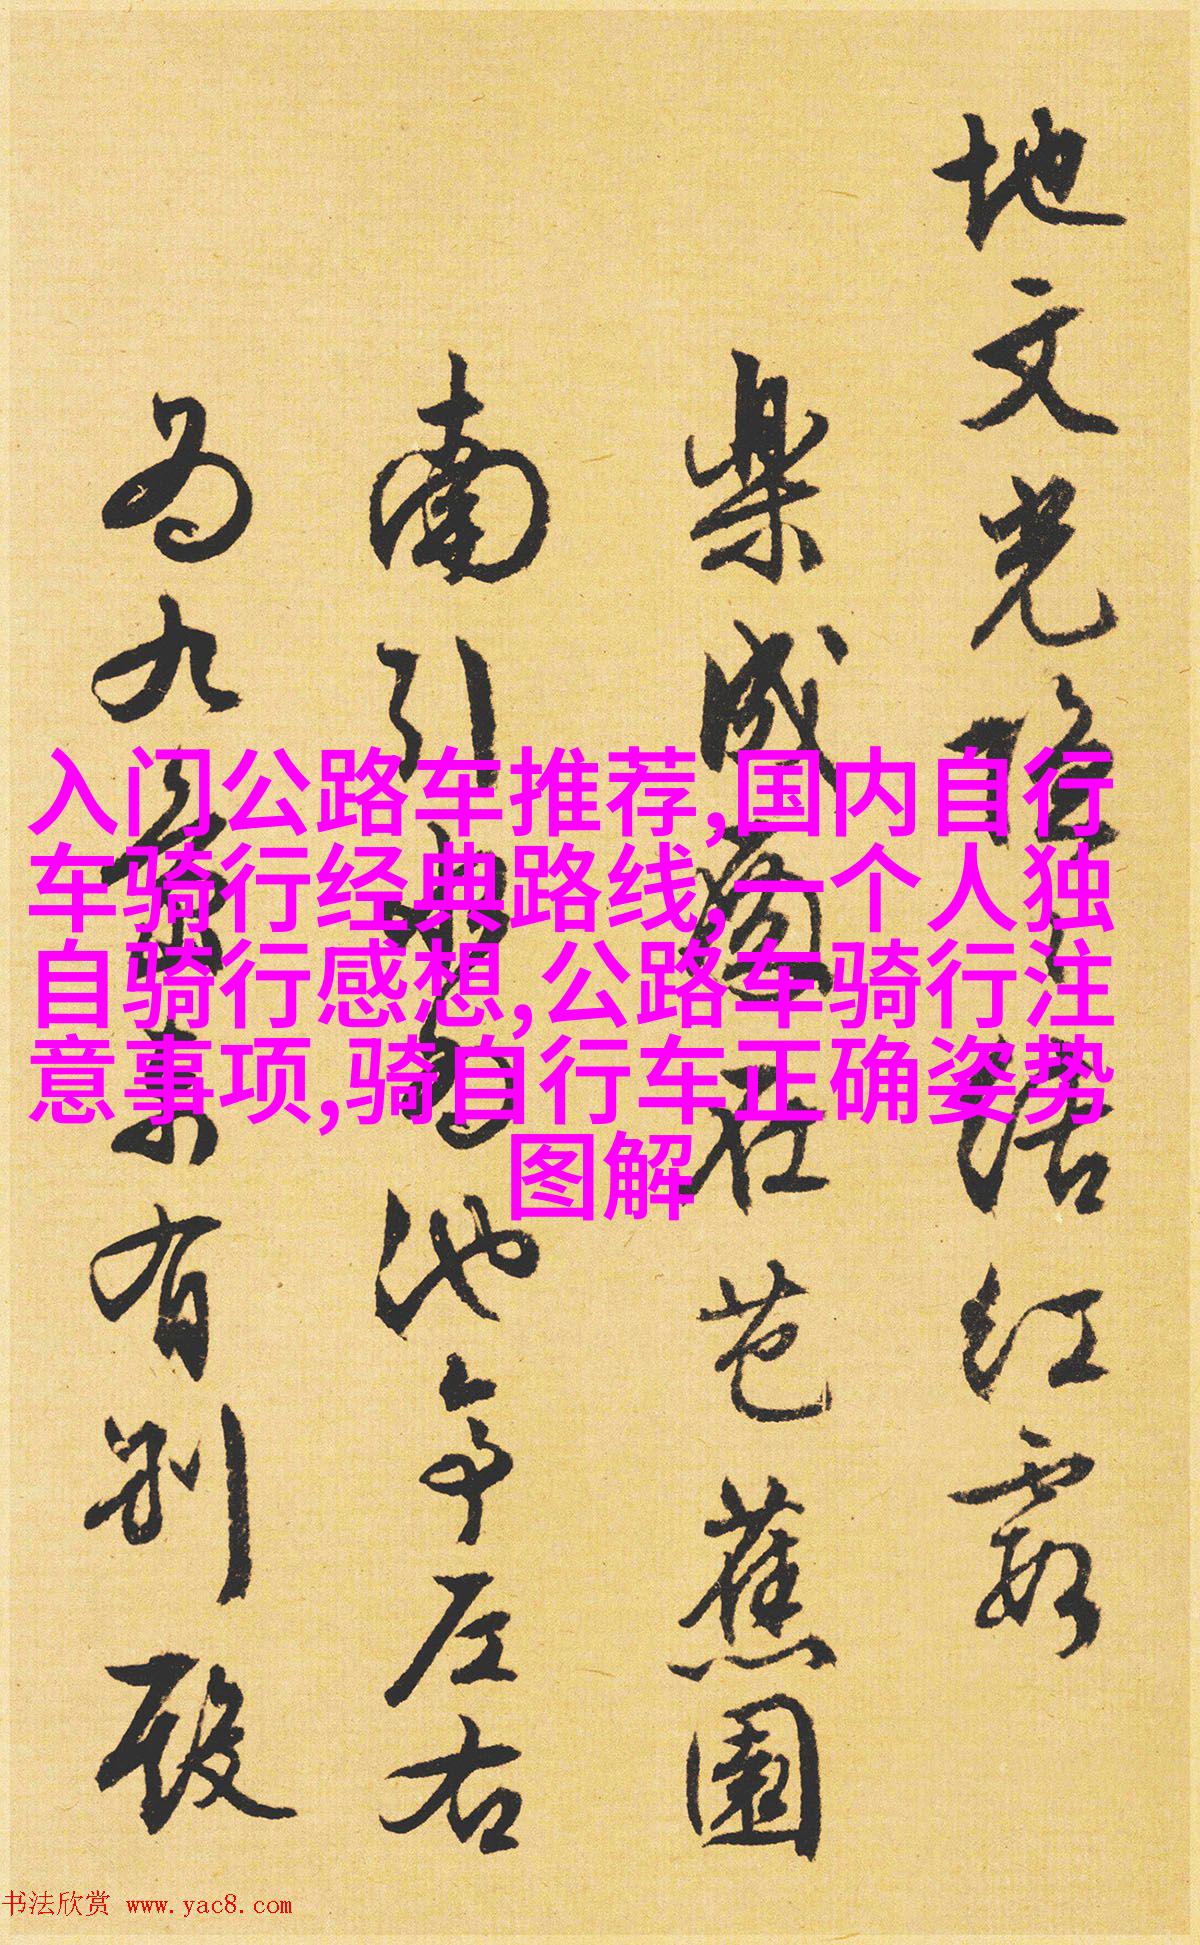 入门公路车推荐,国内自行
车骑行经典路线,一个人独
自骑行感想,公路车骑行注
意事项,骑自行车正确姿势
图解
地文光陰红霞
樂成在芭蕉園
南引池亭左右
為九東有别殿
书法欣赏 www.yac8.com